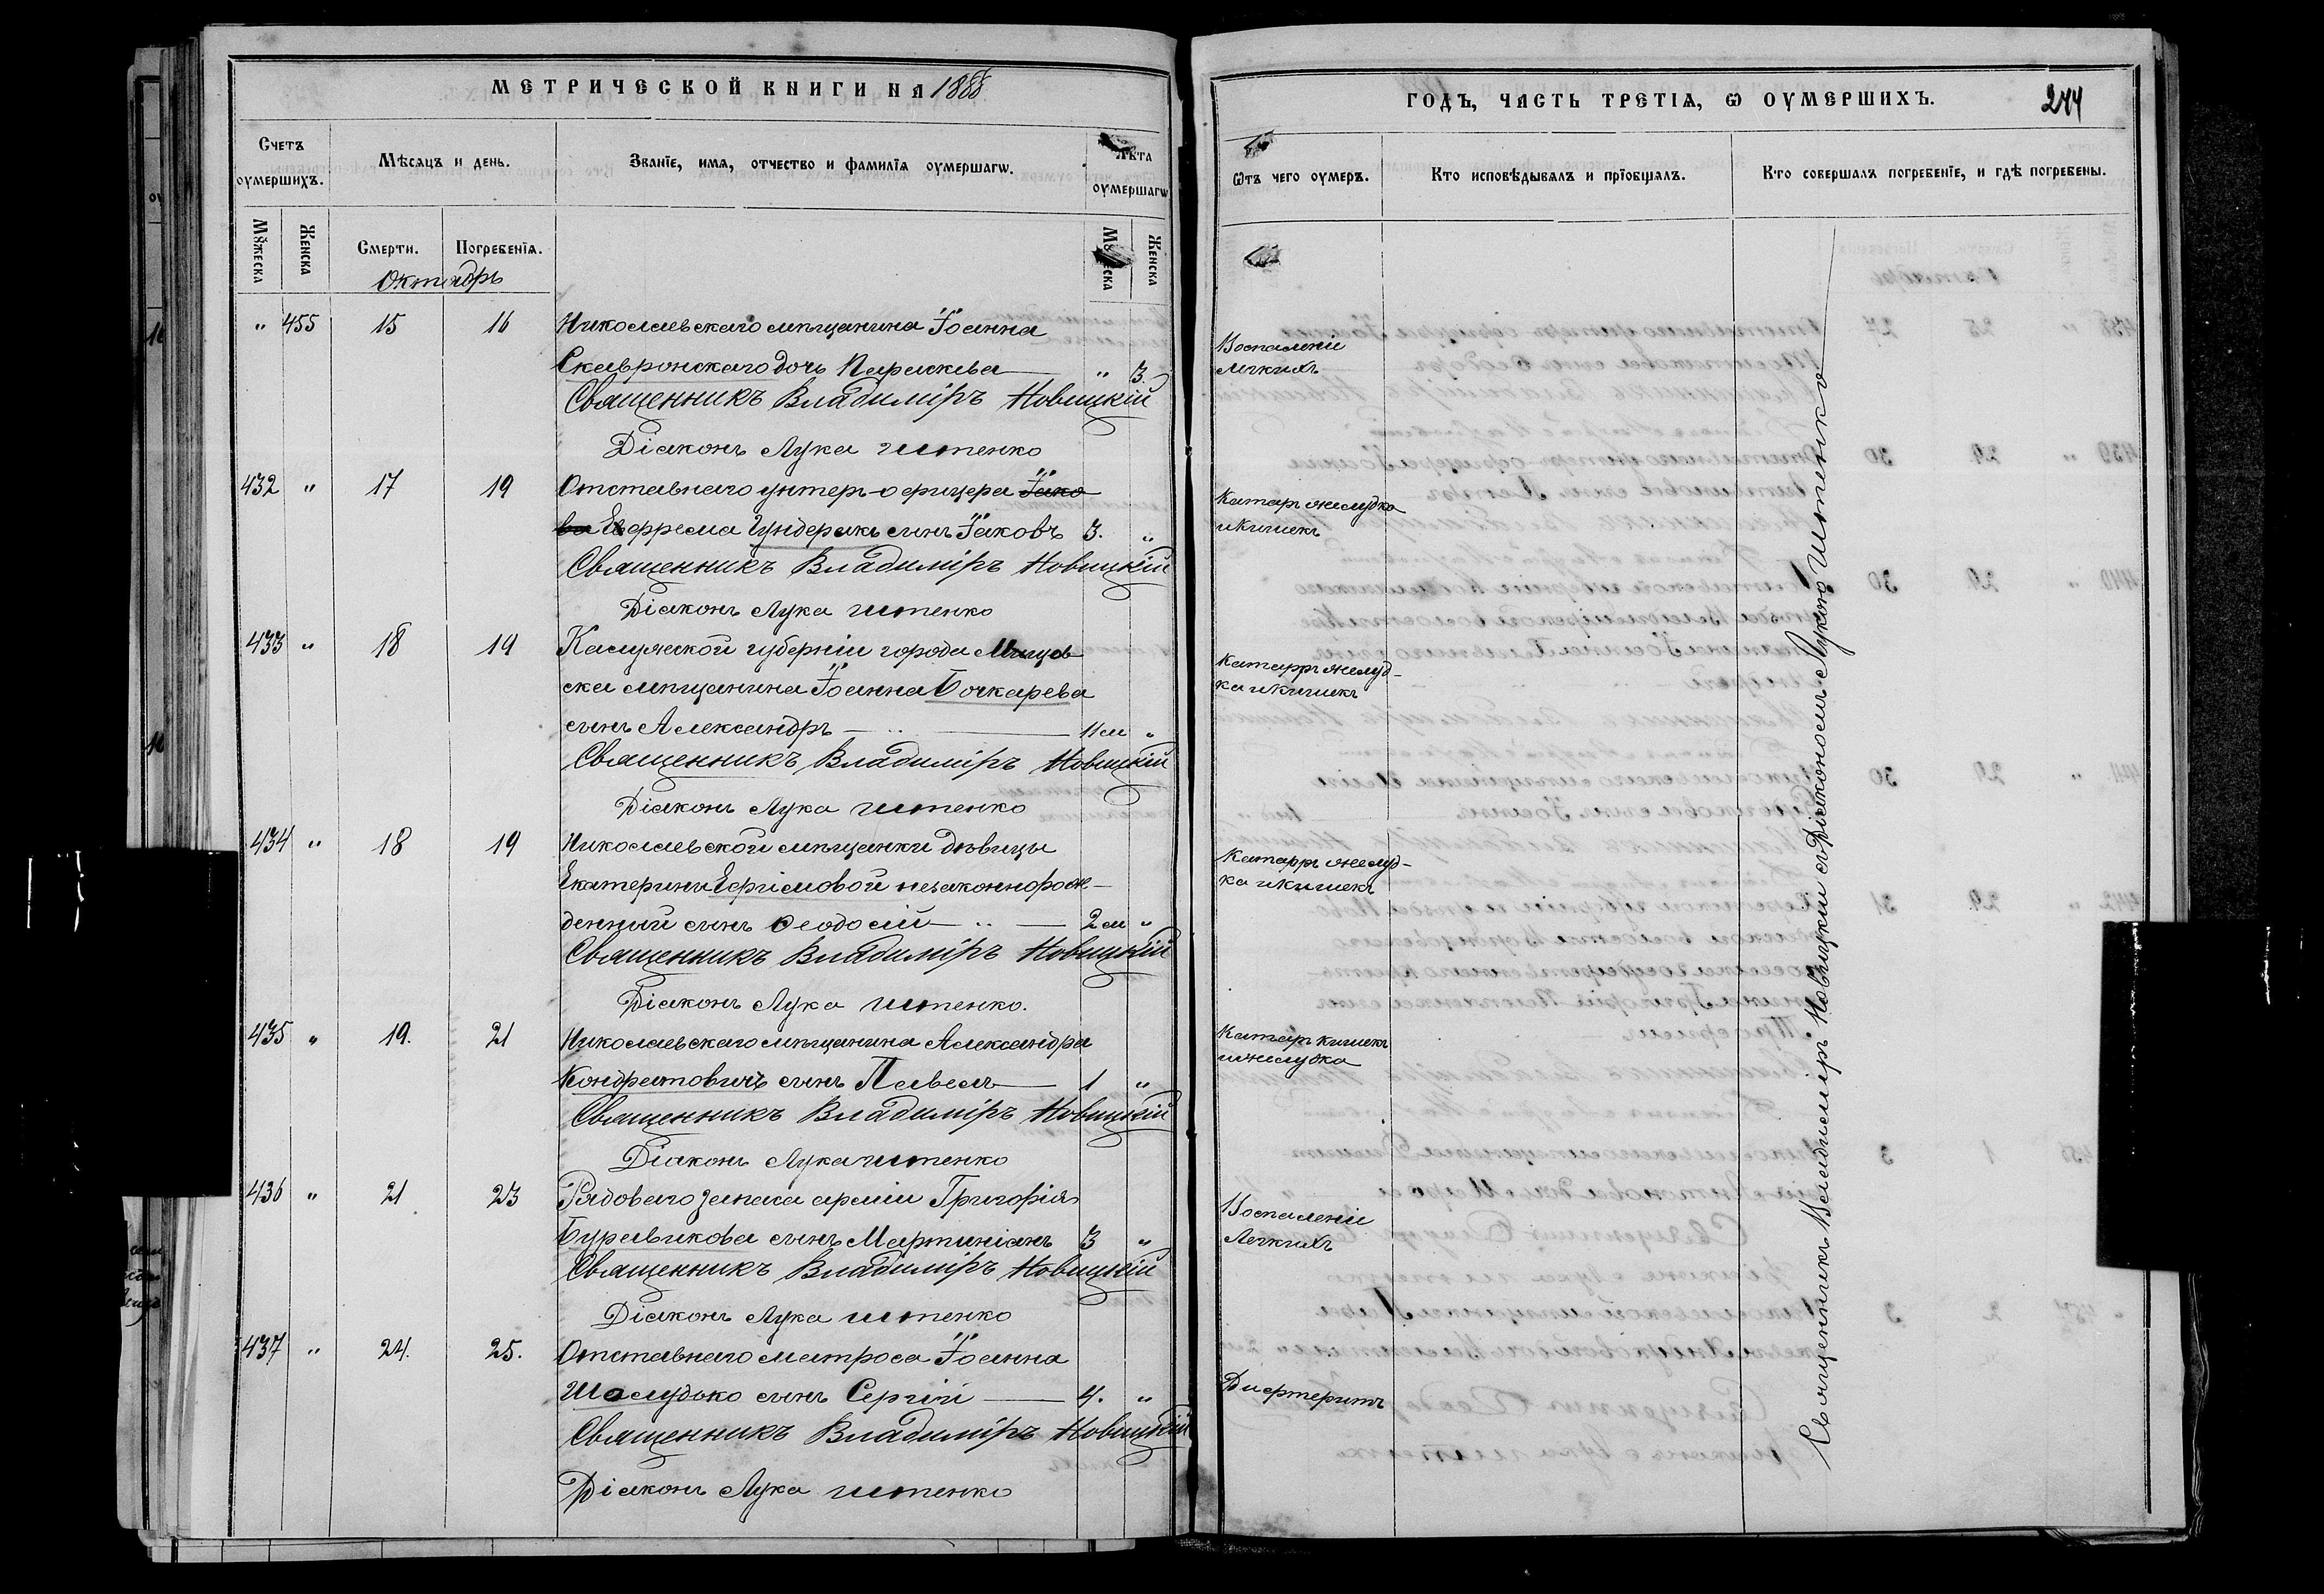 МЕТРИЧЕСКОЙ КНИГИ НА 1888
ГОДЪ, ЧАСТЬ ТРЕТІЯ, Ѡ ОУМЕРШИХЪ.
244
Счетъ оумершихъ.
Мѣсяцъ и день.
Званїе, имя, отчество и фамилїя оумершагѡ.
Лѣта оумершагѡ
Ѿтъ чего оумеръ.
Кто исповѣдывалъ и прїобщалъ.
Кто совершалъ погребенїе, и гдѣ погребены.
Мꙋжеска
Женска
Смерти.
Погребенїя.
Мꙋжеска
Женска
Октябрь
" 455 15 16 Николаевскаго мѣщанина Іоанна
Скавронскаго дочь Параскева " 3.
Воспаленіе
легкихъ
Священникъ Владиміръ Новицкій
Діаконъ Лука Штенко
432 " 17 19 Отставнаго унтер-офицера Іако
ва Ефрема Гундеракъ сынъ Іаковъ 3. "
Катар желудка
и кишекъ
Священникъ Владиміръ Новицкій
Діаконъ Лука Штенко
433 " 18 19 Калужской губерніи города Мещов
ска мѣщанина Іоанна Бочкарева
сынъ Александръ 11 м "
Катарръ желуд-
ка и кишекъ
Священникъ Владиміръ Новицкій
Діаконъ Лука Штенко
434 " 18 19 Николаевской мѣщанки дѣвицы
Екатерины Ефимовой незаконнорож-
денный сынъ Ѳеодосій 2 м "
Катарръ желуд-
ка и кишекъ
Священникъ Владиміръ Новицкій
Діаконъ Лука Штенко.
435 " 19. 21 Николаевскаго мѣщанина Александра
Кондратовичъ сынъ Павелъ 1 "
Катарръ кишекъ
и желудка
Священникъ Владиміръ Новицкій
Діаконъ Лука Штенко
436 " 21 23 Рядоваго запаса арміи Григорія
Буравикова сынъ Мартиніанъ 3 "
Воспаленіе
Легкихъ
Священникъ Владиміръ Новицкій
Діаконъ Лука Штенко
437 " 24. 25. Отставнаго матроса Іоанна
Шолудько сынъ Сергій 4. "
Дифтеритъ
Священникъ Владиміръ Новицкій
Діаконъ Лука Штенко
Священникъ Владиміръ Новицкій съ Діакономъ Лукою Штенко